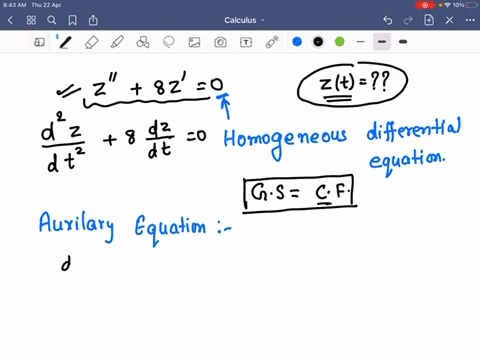 8:43 AM Thu 22 Apr
10%
Calculus
z'' + 8z' = 0
z(t) = ??
d²z/dt² + 8 dz/dt = 0
Homogeneous differential
equation.
G.S = C.F.
Auxilary Equation :-
d